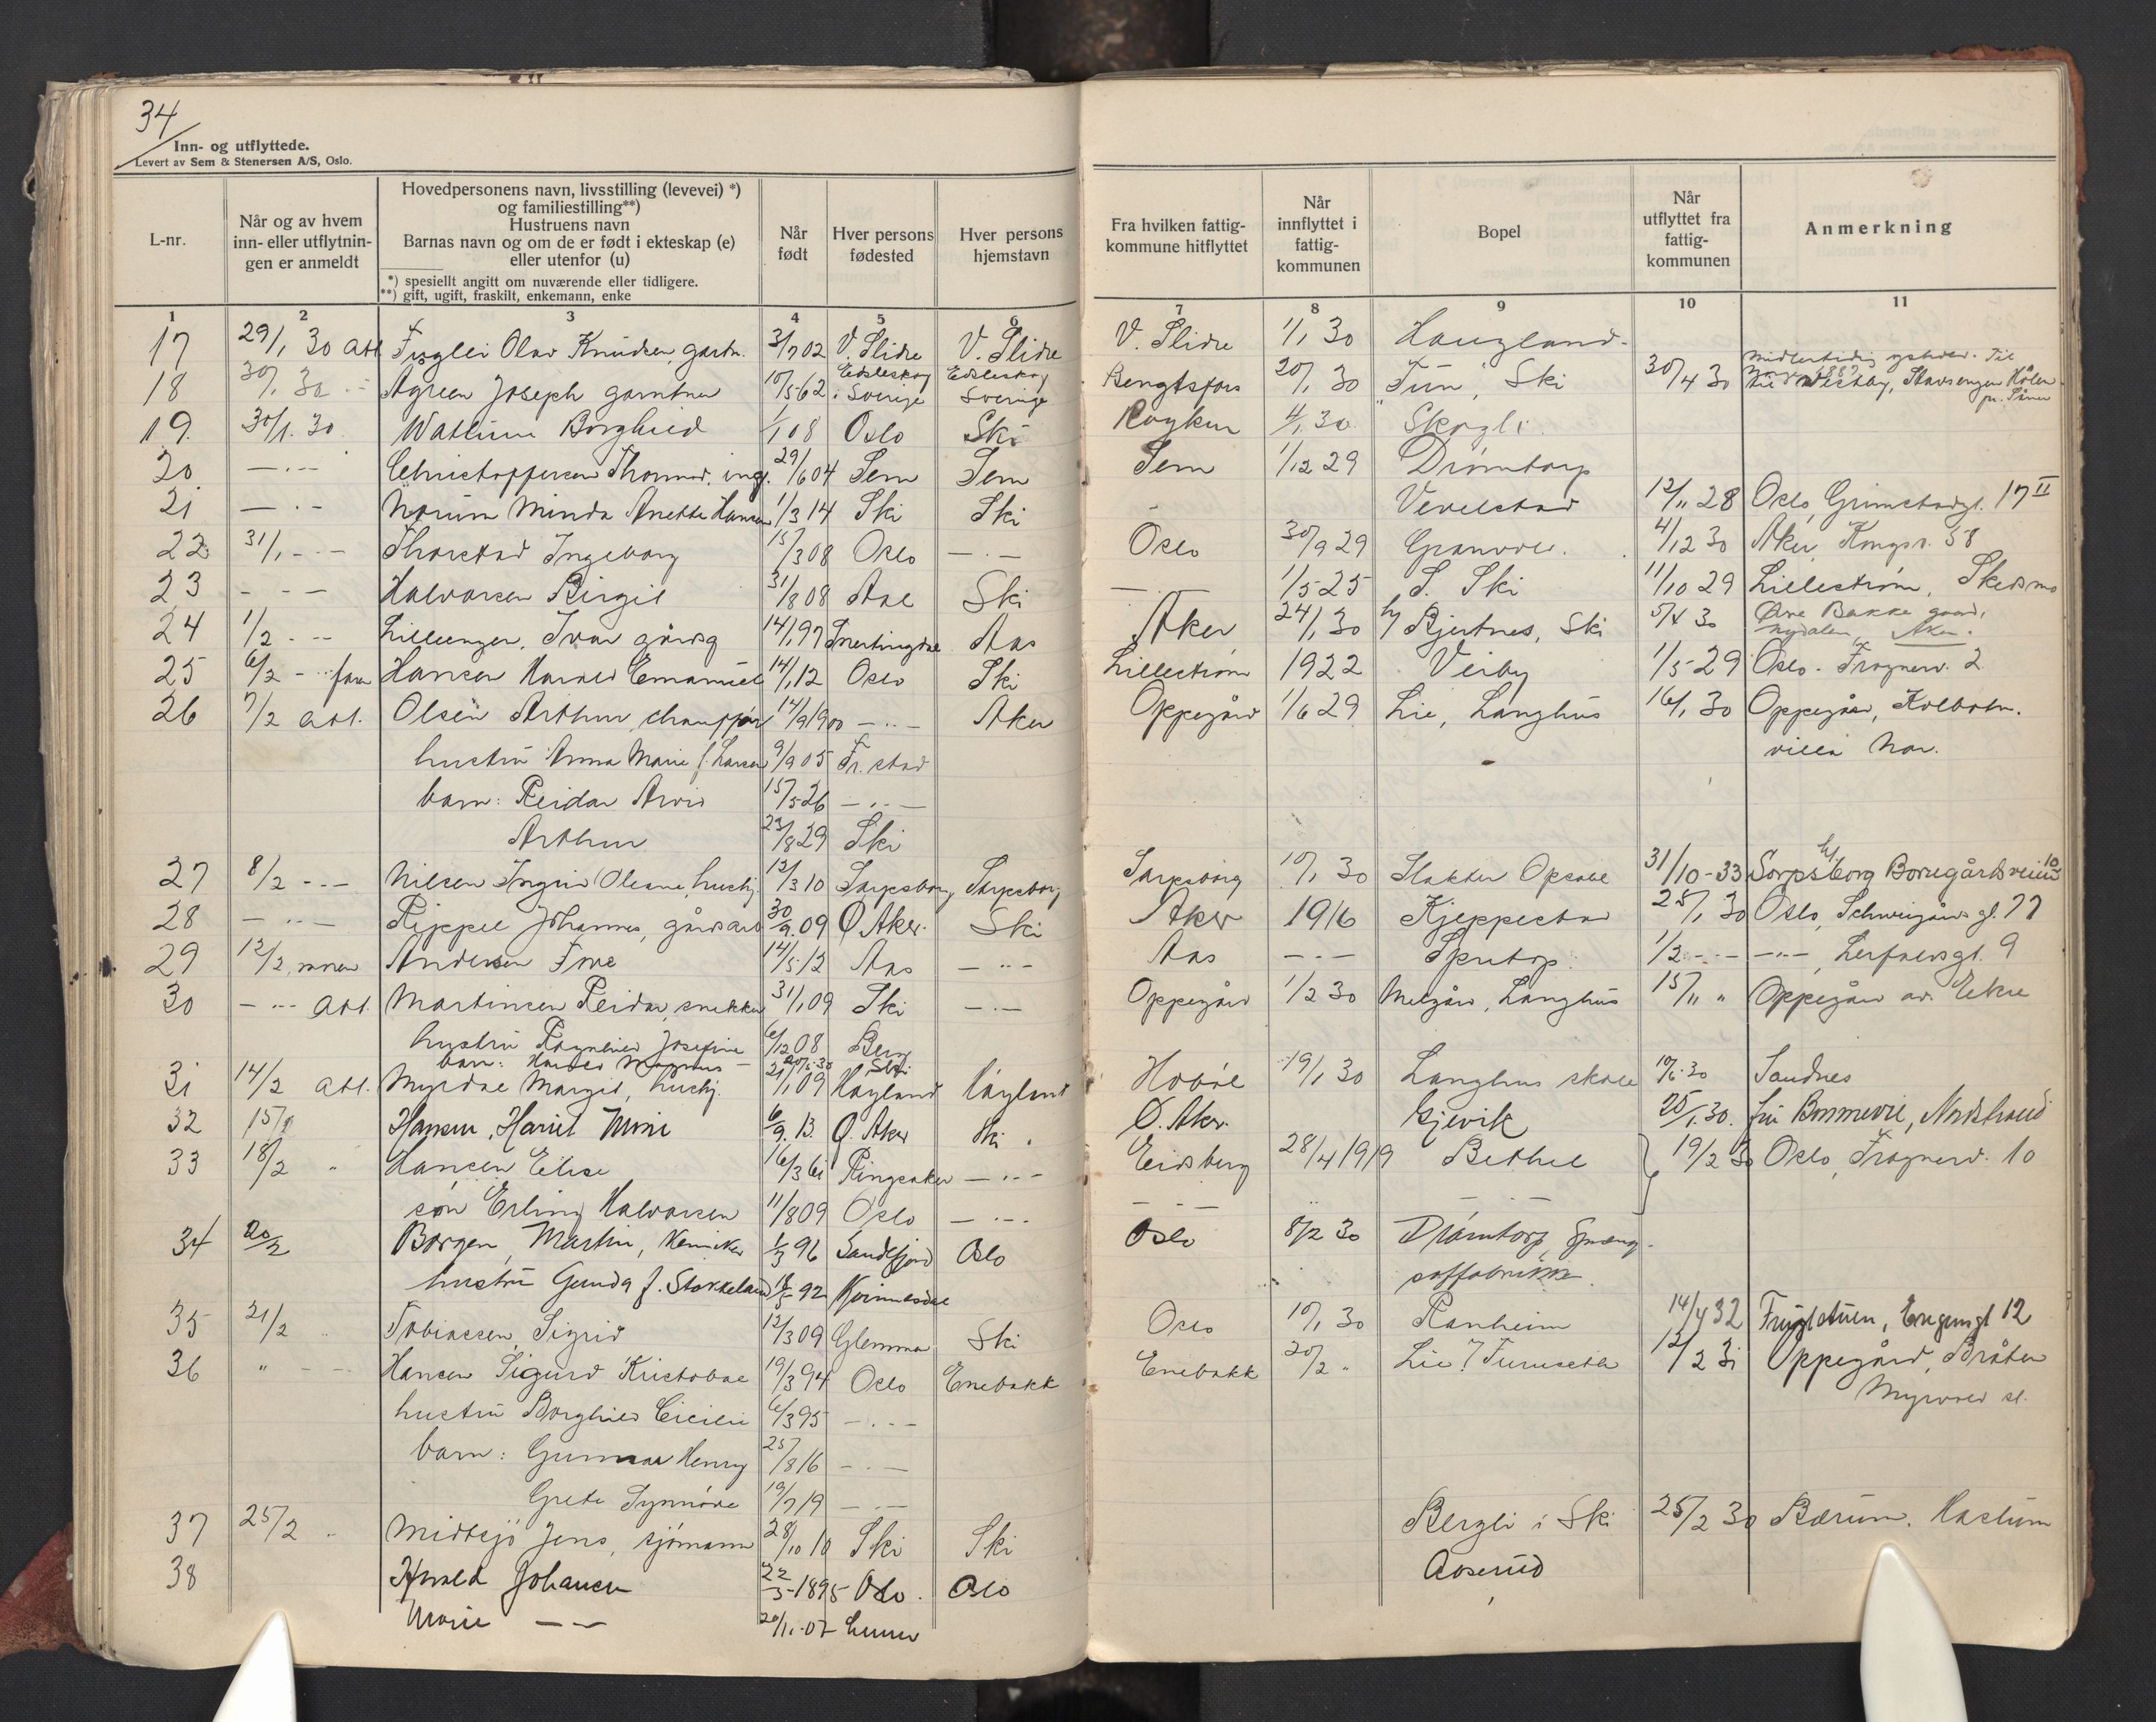 34
Inn- og utflyttede.
Levert av Sem & Stenersen A/S, Oslo.
L-nr.
Når og av hvem inn- eller utflytnin-gen er anmeldt
Hovedpersonens navn, livsstilling (levevei) *) og familiestilling**)
Hustruens navn
Barnas navn og om de er født i ekteskap (e) eller utenfor (u)
*) spesiellt angitt om nuværende eller tidligere.
**) gift, ugift, fraskilt, enkemann, enke
Når født
Hver persons fødested
Hver persons hjemstavn
Fra hvilken fattig-kommune hitflyttet
Når innflyttet i fattig-kommunen
Bopel
Når utflyttet fra fattig-kommunen
Anmerkning
1 2 3 4 5 6 7 8 9 10 11
17 29/1 30 Olav Knudsen, gartn. 3/7 02 V. Slidre V. Slidre V. Slidre 1/1 30 Haugland
18 30/1 30 Agreen Joseph gartner 10/5 62 Edsleskog Sverige Edsleskog Sverige Bengtsfors 20/1 30 "Tun", Ski 30/4 30
19. 30/1. 30 Borghild 1/1 08 Oslo Ski Røyken 4/1 30 Skogli
20 — " — Christoffersen Thormod, ing. 29/6 04 Sem Sem Sem 1/12 29 Drømtorp
21 — " — Norum Minda Anette Hansen 1/3 14 Ski Ski Vevelstad 12/11 28 Oslo, Grimstadgt. 17 II
22 31/1 - - Thorstad Ingeborg 15/3 08 Oslo — " — Oslo 30/9 29 Granvold. 4/12 30 Aker Kongsv. 58
23 - - - Halvorsen Birgit 31/8 08 Aal Ski — 1/5 25 S. Ski 11/10 29 Lillestrøm, Skedsmo
24 1/2 - - Lilleenger, Ivar gårdsg 14/1 97 Snertingdal Aas Aker 24/1 30 h/ Kjertnes, Ski 5/4 30 Øvre Bakke gaard, Nydalen, Aker.
25 6/2 - " - faren Hansen Harald Emanuel 14/1 12 Oslo Ski Lillestrøm 1922 Verby 1/5 29 Oslo. Frognerv. 2
26 7/2 Olsen Arthur, chauffør 14/9 1900 — " — Aker Oppegård 1/6 29 Lie, Langhus 16/1 30 Oppegård, Kolbotn.
hustru Anna Marie f. Larsen 9/9 05 Fr.stad villa Nor.
barn: Reidar Arvid 15/5 26 — " —
Arthur 23/8 29 Ski
27 8/2 - - Nilsen Ingrid Oleane, hushj. 12/3 10 Sarpsborg Sarpsborg Sarpsborg 10/1 30 Slakter Opsahl 31/10-33 Sarpsborg Borregårdsveien 10
28 — " — Rippel Johannes, gårdsarb 30/9. 09 Ø. Aker. Ski Aker 1916 Kjeppestad 25/1 30 Oslo, Schweigårds gt. 77
29 12/2, moren Andersen Tove 14/5 12 Aas — " — Aas — " — Sputorp. 1/2 - - — " —, Lerfaldsgt. 9
30 — " — Martinsen Reidar, snekker 31/1 09 Ski — " — Oppegård 1/2 30 Melgård, Langhus 15/11 " Oppegård av. Eikre
hustru Ragnhild Josefine 6/12 08 Berg
barn: Harald Magnus
31 14/2 Myrdal Margit, hushj. 21/1 09 Høyland Høyland Hobøl 19/1 30 Langhus skole 10/6-30 Sandnes
32 15/ Hansen, Hariet Mimi 6/9. 13 Ø. Aker Ski Ø. Aker. Gjevik 25/1. 30. fru Bonnevie, Nordstrand
33 18/2 " Hansen Elise 16/3 61 Ringsaker — " — Eidsberg 28/4 1919 Bethel 19/2 30 Oslo, Frognerv. 10
søn Erling Halvorsen 11/8 09 Oslo — " — — " — — " —
34 20/2 Borgen, Martin, Kemiker 1/3 96 Sandefjord Oslo Oslo 8/2 30 Drømtorp, Spræng-
hustru Gunda f. Stokkeland 18/5 92 Kvinnesdal stoffabrikk.
35 21/2 " Tobiassen, Sigrid 12/3 09 Glemmen Ski Oslo 10/1 30 Ranheim 14/4 32 12
36 " - - Hansen Sigurd Kristobal 19/3 94 Oslo Enebakk Enebakk 20/2 " Lie / Furuseth 12/2 31 Oppegård, Bråten
hustru Borghild Cicilie 6/3 95 — " — Myrvold st.
barn: Gunnar Henry 25/8 16 — " —
Grete Synnøve 19/7 19 — " —
37 25/2 " Midtsjø Jens, sjømann 28/10 10 Ski Ski Bergli i Ski 25/2 30 Bærum. Haslum
38 Harald Johansen 22/3-1895 Oslo. Oslo Aaserud
Marie — " — 20/11-07 Lunner